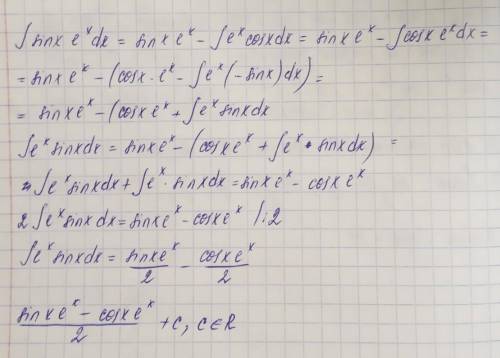 ∫ sinx e^x dx = sinx e^x - ∫ e^x cosx dx = sinx e^x - ∫ cosx e^x dx =
= sinx e^x - (cosx · e^x - ∫ e^x (-sinx) dx) =
= sinx e^x - (cosx e^x + ∫ e^x sinx dx
∫ e^x sinx dx = sinx e^x - (cosx e^x + ∫ e^x · sinx dx) =
= ∫ e^x sinx dx + ∫ e^x · sinx dx = sinx e^x - cosx e^x
2 ∫ e^x sinx dx = sinx e^x - cosx e^x /:2
∫ e^x sinx dx = sinx e^x / 2 - cosx e^x / 2
(sinx e^x - cosx e^x) / 2 + c, c ∈ R